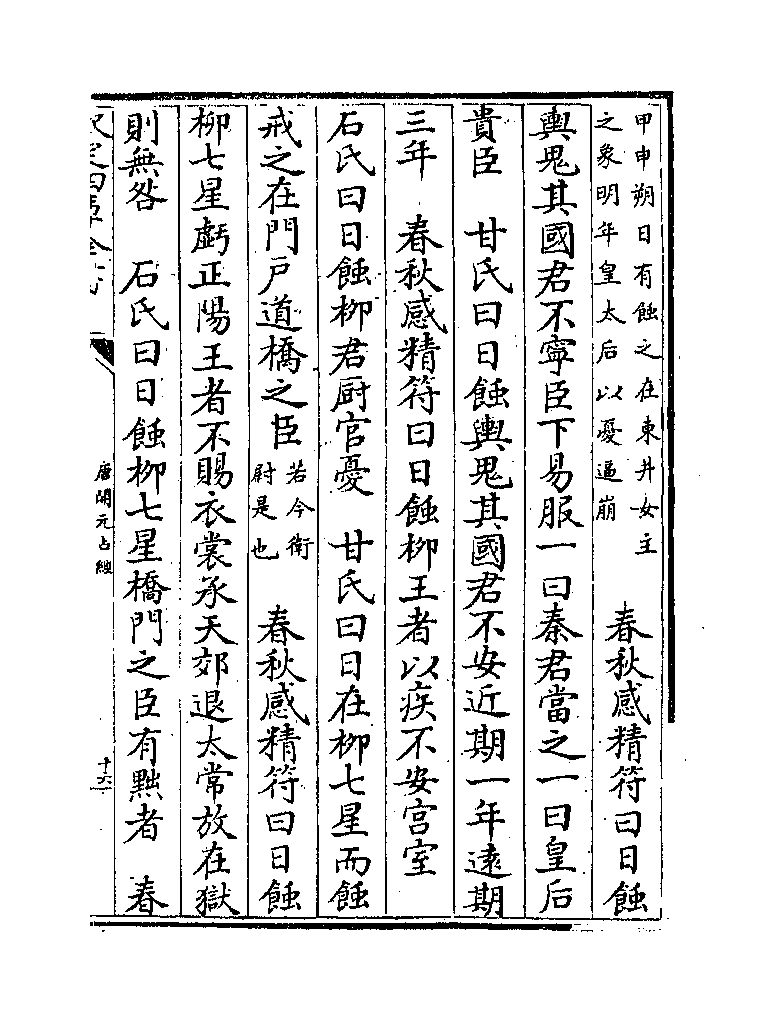 甲申朔日有蝕之在東井女主
之象明年皇太后以憂逼崩
春秋感精符曰日蝕
輿鬼其國君不寧臣下易服一曰秦君當之一曰皇后
貴臣　甘氏曰日蝕輿鬼其國君不安近期一年遠期
三年　春秋感精符曰日蝕柳王者以疾不安宫室
石氏曰日蝕柳君厨官憂　甘氏曰日在柳七星而蝕
戒之在門戶道橋之臣
若今衛
尉是也
春秋感精符曰日蝕
柳七星虧正陽王者不賜衣裳承天郊退太常放在獄
則無咎　石氏曰日蝕柳七星橋門之臣有黜者　春
欽定四庫全書
唐開元占經
十六